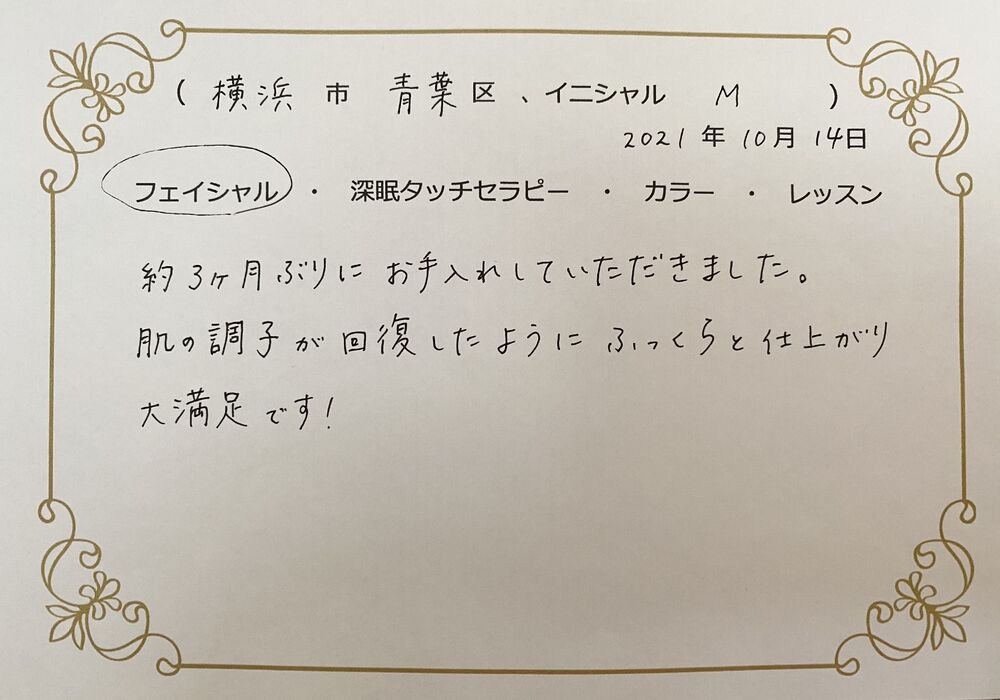 ( 横浜 市 青葉 区 、イニシャル M )
2021 年 10 月 14 日
フェイシャル ・ 深眠タッチセラピー ・ カラー ・ レッスン
約3ヶ月ぶりにお手入れしていただきました。
肌の調子が回復したようにふっくらと仕上がり
大満足です!